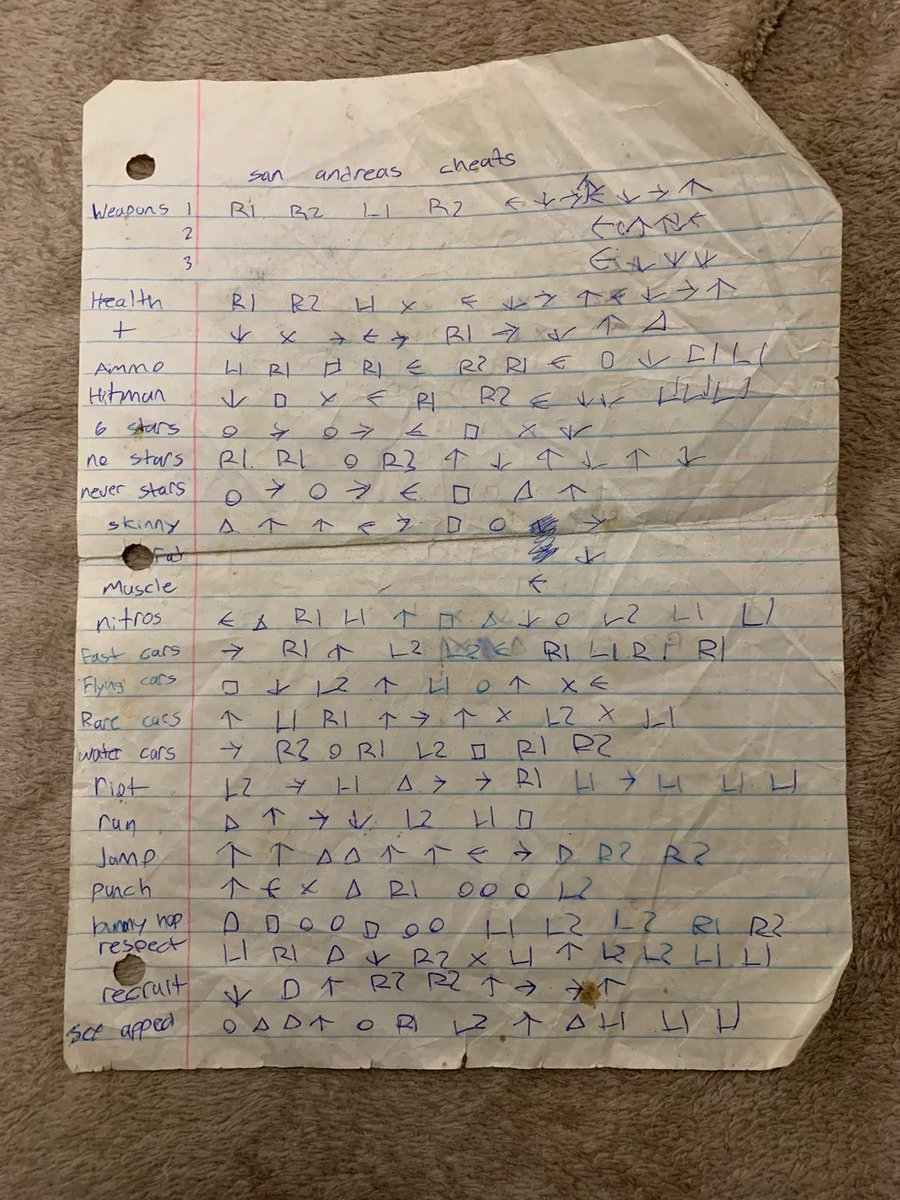 san andreas cheats
Weapons 1 R1 R2 L1 R2 ← ↓ → ↑ ← ↓ → ↑
2
3 ← ↓ ↓ ↓
Health R1 R2 L1 × ← ↓ → ↑ ← ↓ → ↑
+ ↓ × → ← → R1 → ↓ ↑ △
Ammo L1 R1 □ R1 ← R2 R1 ← □ ↓ L1 L1
Hitman ↓ □ × ← R1 R2 ← ↓ ↓ L1 L1 L1
6 stars ○ → ○ → ← □ × ↓
no stars R1 R1 ○ R2 ↑ ↓ ↑ ↓ ↑ ↓
never stars ○ → ○ → ← □ △ ↑
skinny △ ↑ ↑ ← → □ ○ →
Fat ↓
Muscle ←
nitros ← △ R1 L1 ↑ □ △ ↓ ○ L2 L1 L1
Fast cars → R1 ↑ L2 L2 ← R1 L1 R1 R1
Flying cars □ ↓ L2 ↑ L1 ○ ↑ × ←
Rare cars ↑ L1 R1 ↑ → ↑ × L2 × L1
water cars → R2 ○ R1 L2 □ R1 R2
riot L2 → L1 △ → → R1 L1 → L1 L1 L1
run △ ↑ → ↓ L2 L1 □
Jump ↑ ↑ △ △ ↑ ↑ ← → □ R2 R2
punch ↑ ← × △ R1 ○ ○ ○ L2
bunny hop △ □ ○ ○ □ ○ ○ L1 L2 L2 R1 R2
respect L1 R1 △ ↓ R2 × L1 ↑ L2 L2 L1 L1
recruit ↓ □ ↑ R2 R2 ↑ → → ↑
sex apped ○ △ △ ↑ ○ R1 L2 ↑ △ L1 L1 L1